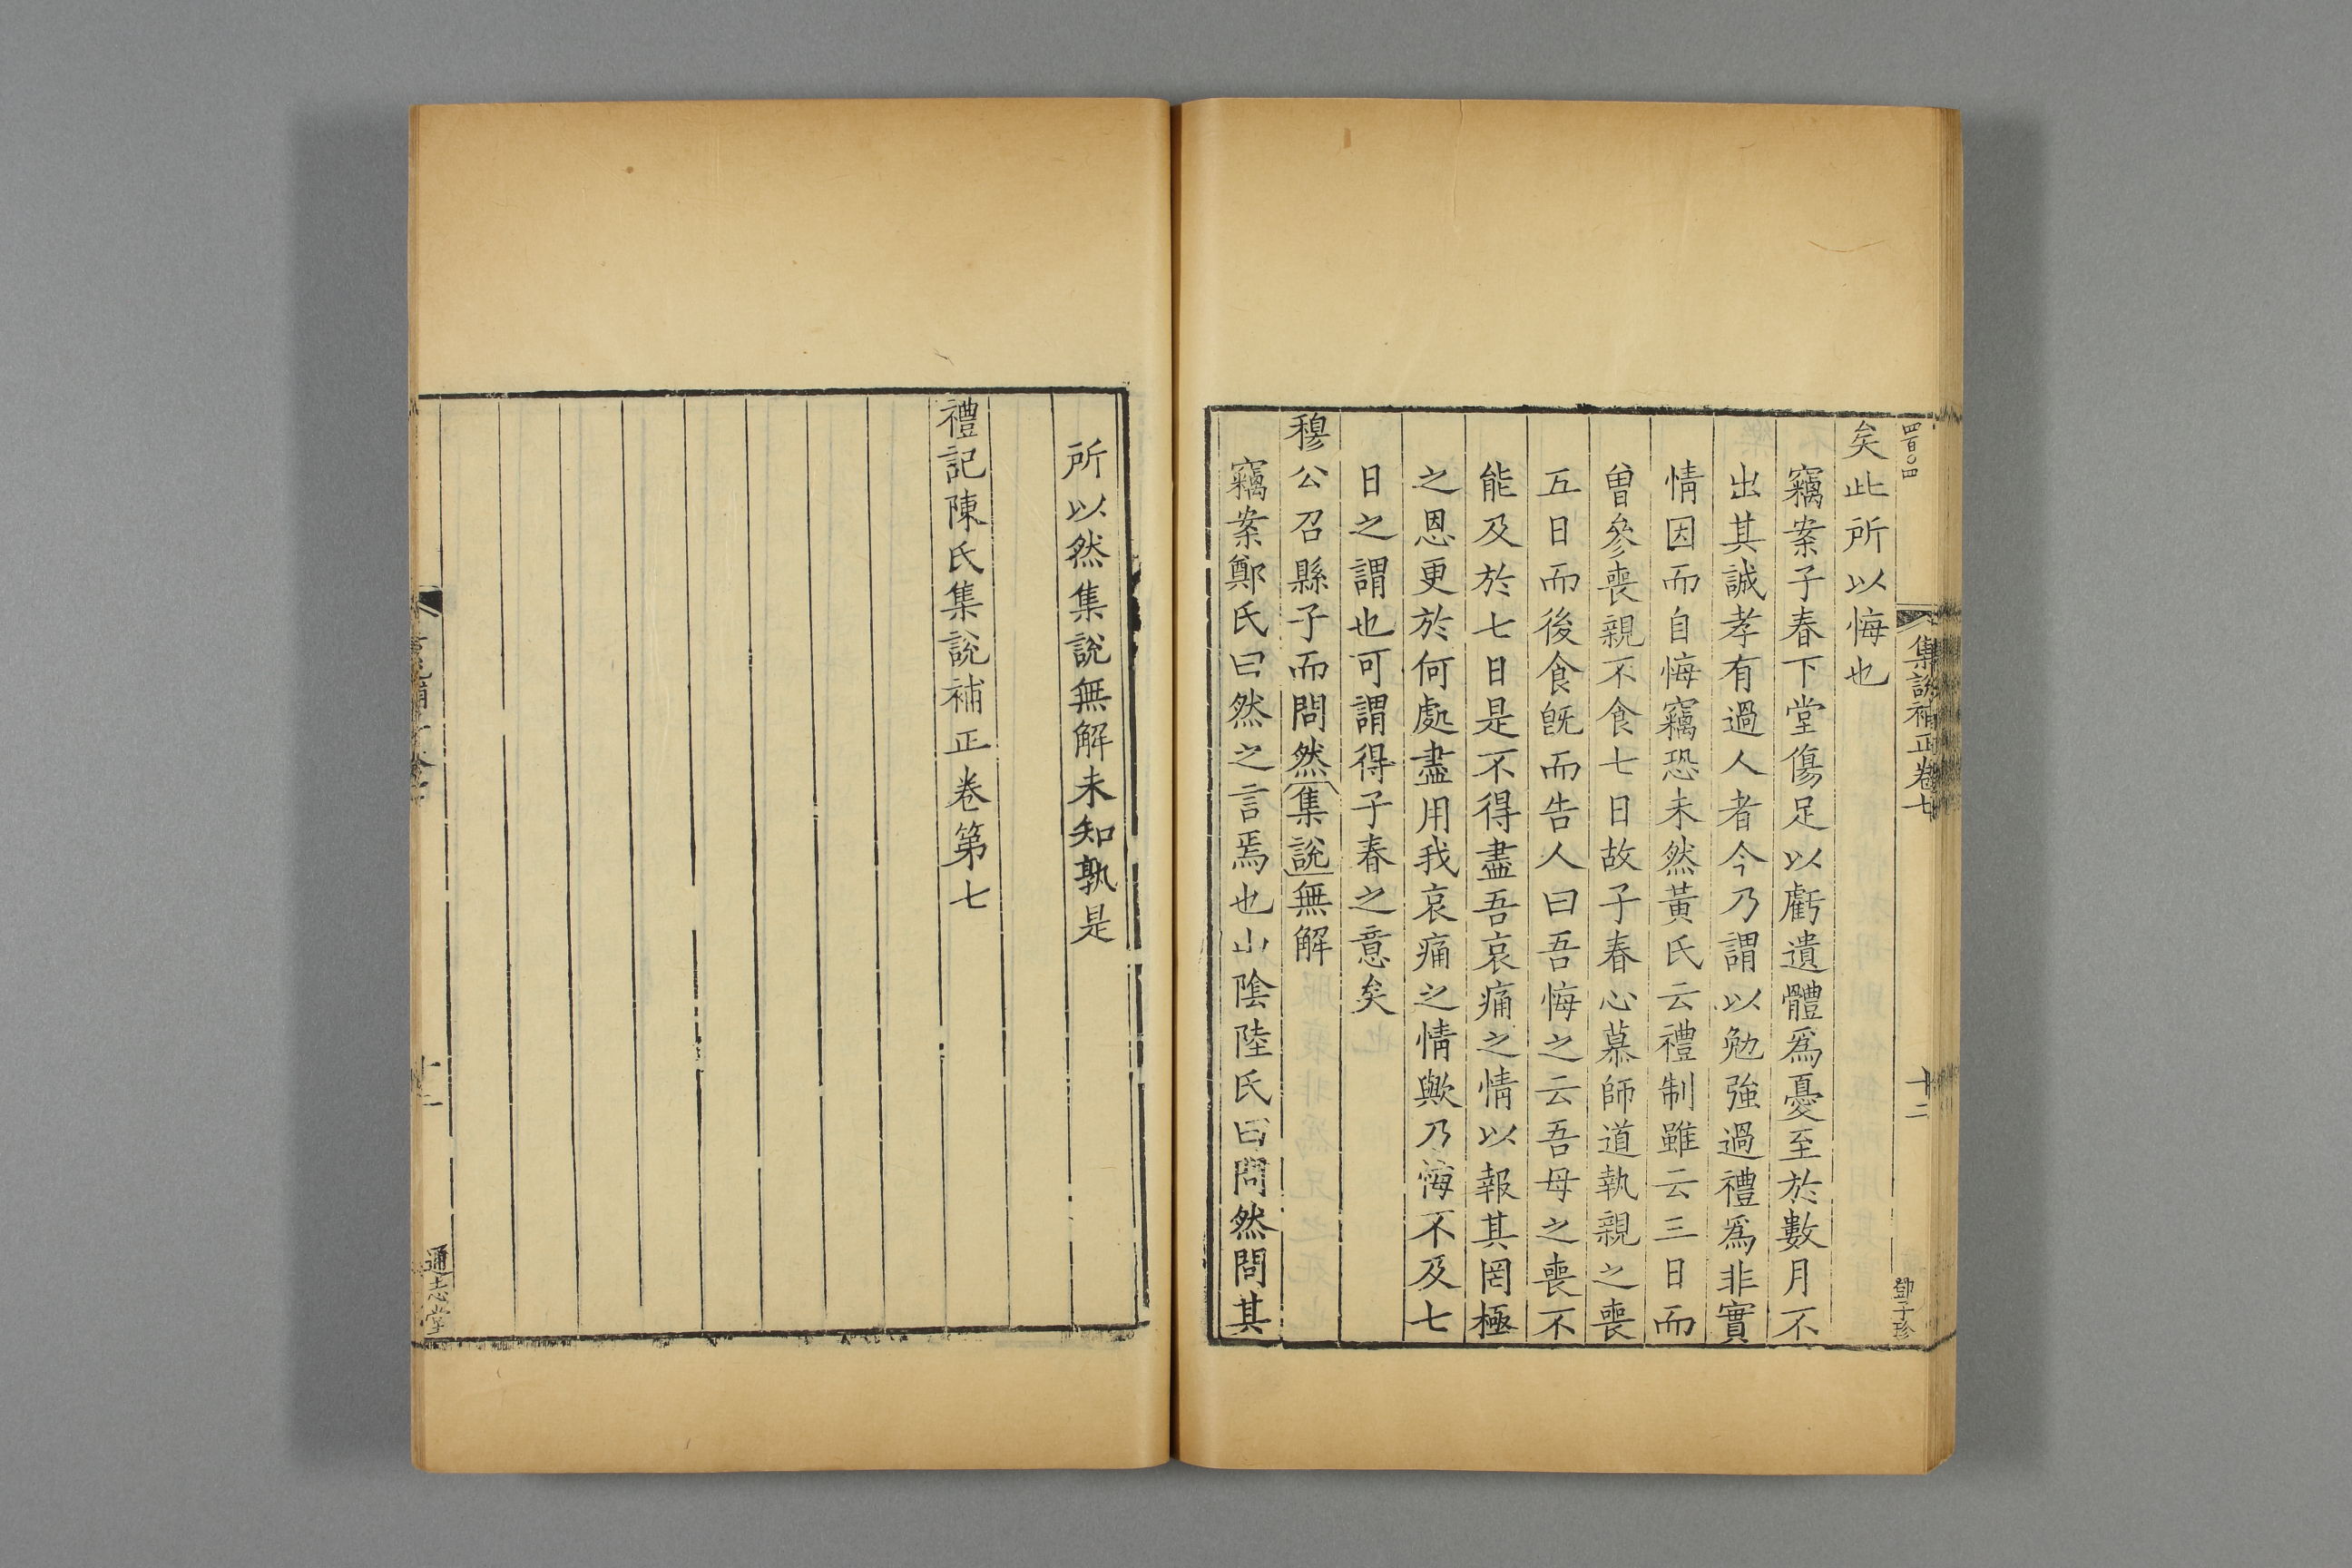 四百〇四
集說補正卷七
十二
鄧子珍
矣此所以悔也
竊案子春下堂傷足以虧遺體爲憂至於數月不
出其誠孝有過人者今乃謂以勉強過禮爲非實
情因而自悔竊恐未然黃氏云禮制雖云三日而
曾參喪親不食七日故子春心慕師道執親之喪
五日而後食旣而告人曰吾悔之云吾母之喪不
能及於七日是不得盡吾哀痛之情以報其罔極
之恩更於何處盡用我哀痛之情歟乃悔不及七
日之謂也可謂得子春之意矣
穆公召縣子而問然集說無解
竊案鄭氏曰然之言焉也山陰陸氏曰問然問其
所以然集說無解未知孰是
禮記陳氏集說補正卷第七
通志堂